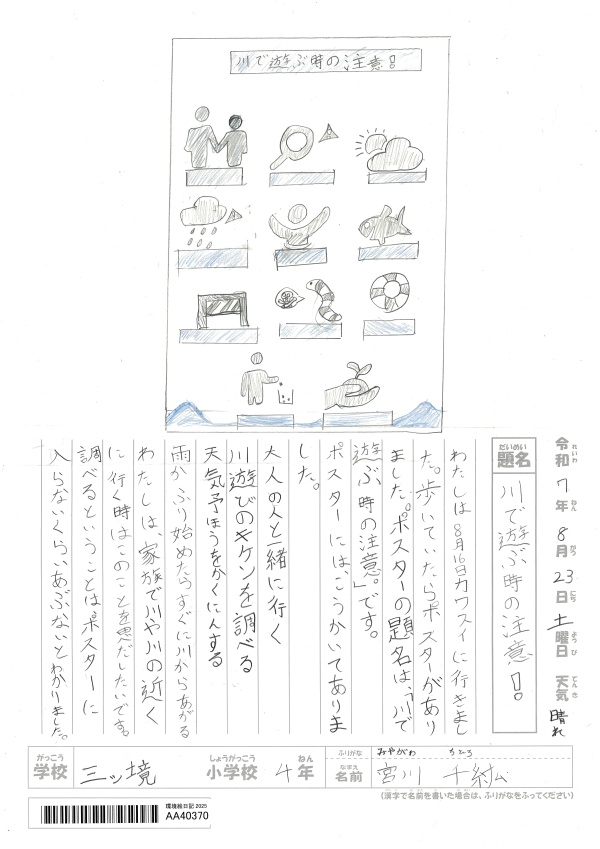 川で遊ぶ時の注意!
令和7年8月23日土曜日 天気 晴れ
れいわ ねん がつ にち ようび てんき
だいめい
題名
川で遊ぶ時の注意!
わたしは8月16日カワスイに行きまし
た。歩いていたらポスターがあり
ました。ポスターの題名は、「川で
遊ぶ時の注意。」です。
ポスターには、こうかいてありま
した。
大人の人と一緒に行く
川遊びのキケンを調べる
天気予ほうをかくにんする
雨がふり始めたらすぐに川からあがる
わたしは、家族で川や川の近く
に行く時はこのことを思だしたいです。
調べるということはポスターに
入らないくらいあぶないとわかりました。
がっこう
学校
三ッ境
しょうがっこう
小学校
4年
ねん
ふりがな
みやがわ ちひろ
なまえ
名前
宮川 千紘
(漢字で名前を書いた場合は、ふりがなをふってください)
環境絵日記 2025
AA40370